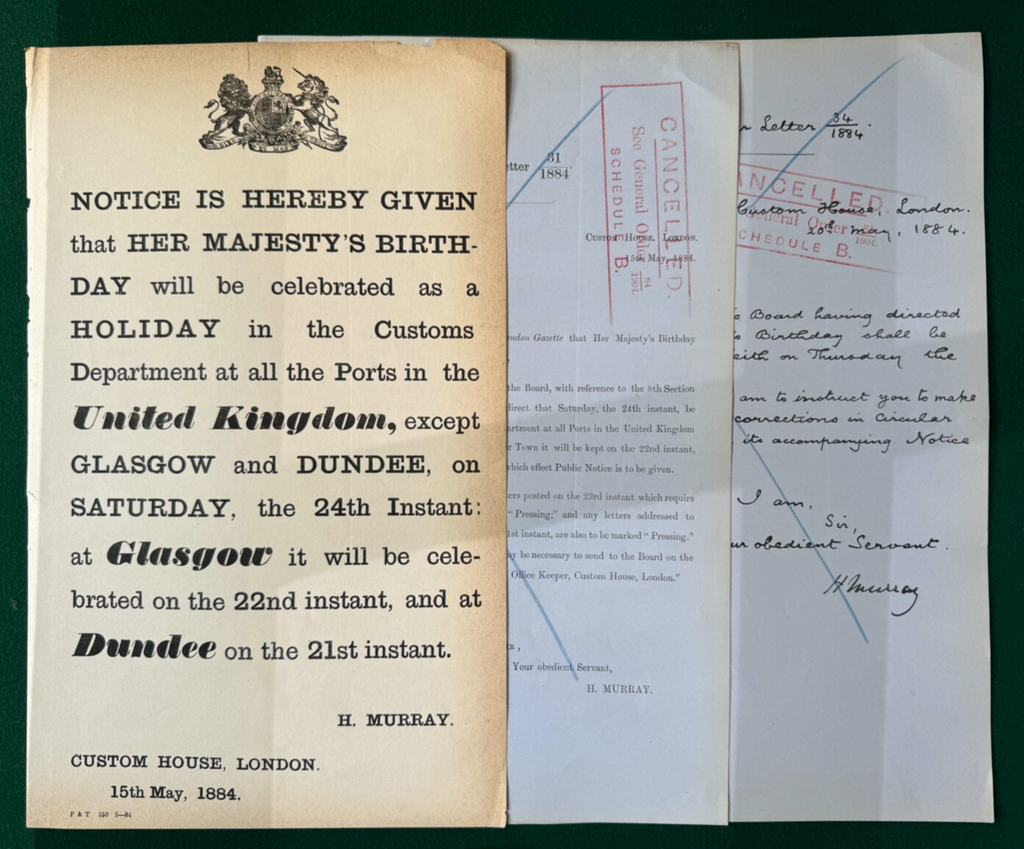 NOTICE IS HEREBY GIVEN
that HER MAJESTY'S BIRTH-
DAY will be celebrated as a
HOLIDAY in the Customs
Department at all the Ports in the
United Kingdom, except
GLASGOW and DUNDEE, on
SATURDAY, the 24th Instant:
at Glasgow it will be cele-
brated on the 22nd instant, and at
Dundee on the 21st instant.
H. MURRAY.
CUSTOM HOUSE, LONDON.
15th May, 1884.
F & T 550 5—84
etter 31/1884.
CANCELLED.
See General Order 84/1904.
SCHEDULE B.
CUSTOM HOUSE, LONDON.
15th May, 1884.
ondon Gazette that Her Majesty's Birthday
the Board, with reference to the 8th Section
direct that Saturday, the 24th instant, be
artment at all Ports in the United Kingdom
r Town it will be kept on the 22nd instant,
which effect Public Notice is to be given.
ers posted on the 23rd instant which require
"Pressing;" and any letters addressed to
1st instant, are also to be marked "Pressing."
ay be necessary to send to the Board on the
Office Keeper, Custom House, London."
Your obedient Servant,
H. MURRAY.
r Letter 34/1884.
ANCELLED.
General Order 1904.
CHEDULE B.
Custom House, London.
20th May, 1884.
e Board having directed
s Birthday shall be
eith on Thursday the
am to instruct you to make
corrections in Circular
its accompanying Notice
I am,
Sir,
ur obedient Servant.
H Murray